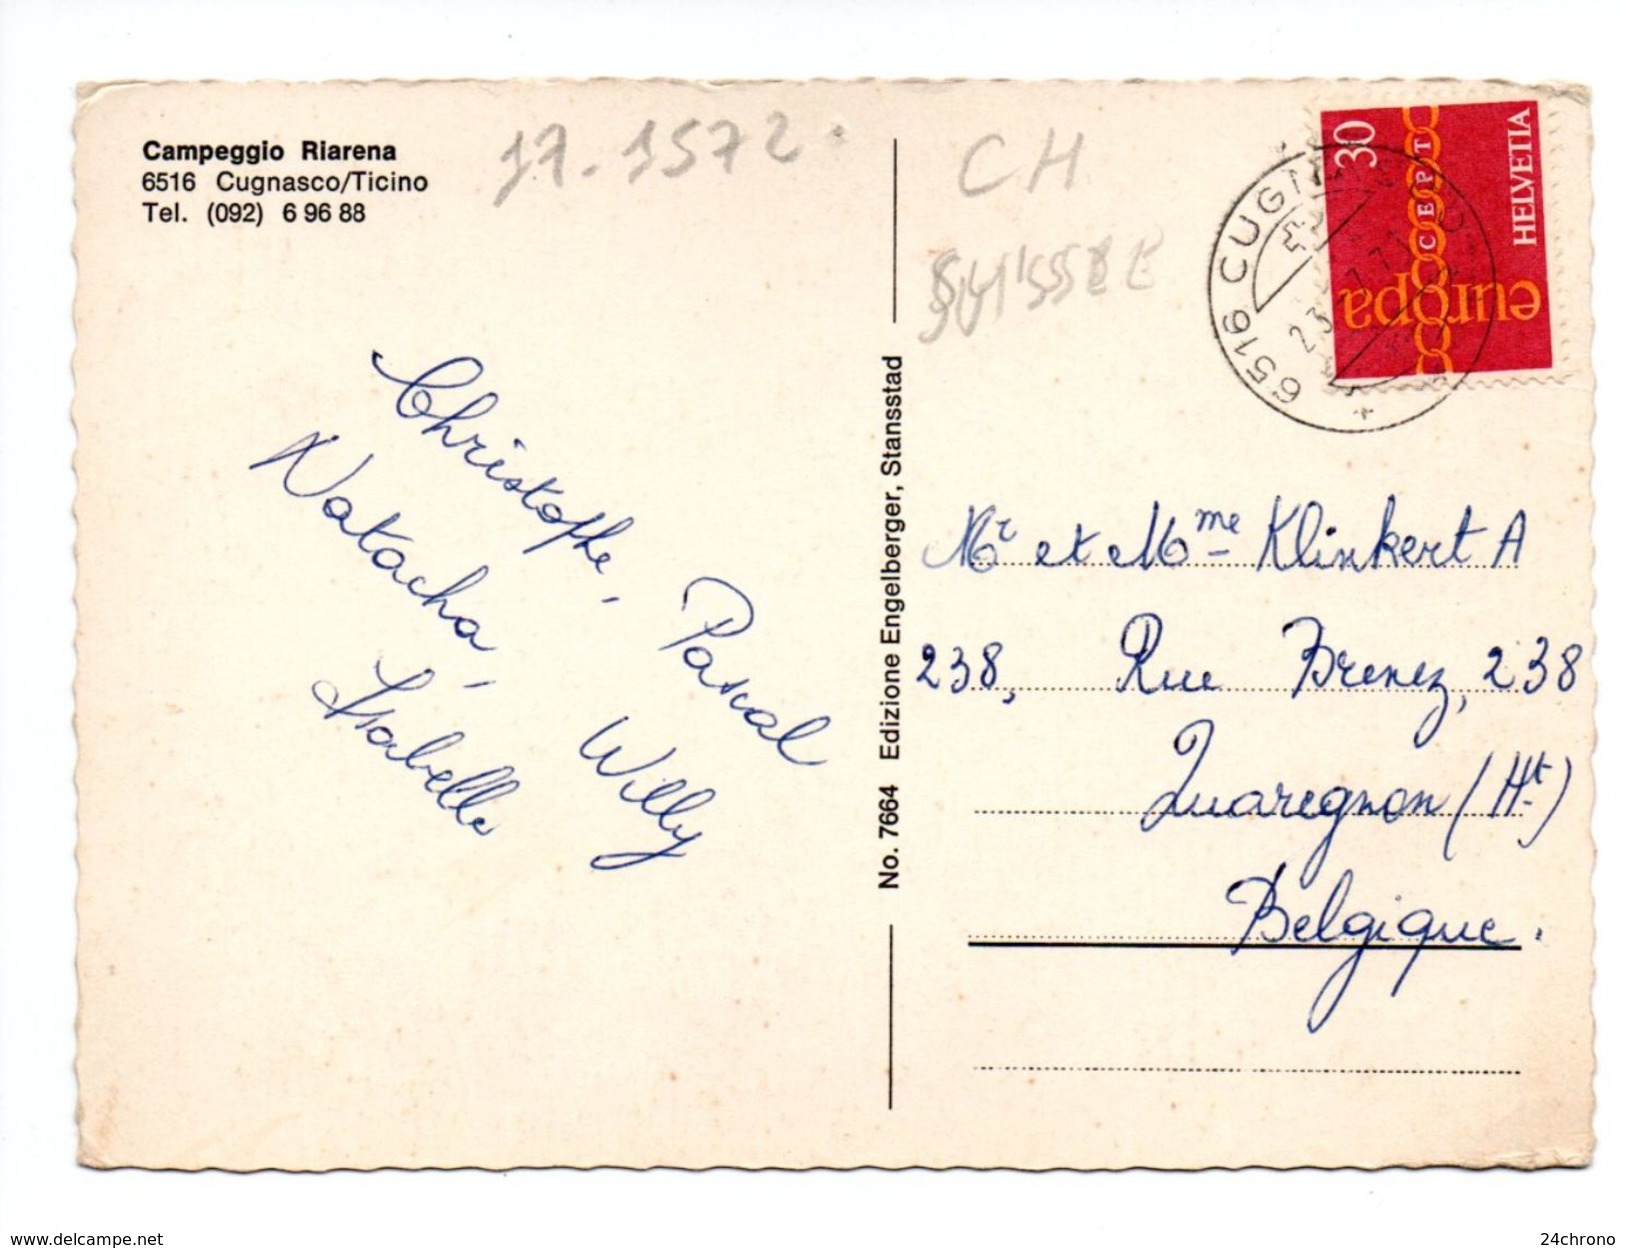 Campeggio Riarena
6516 Cugnasco/Ticino
Tel. (092) 6 96 88
17-1572
CH
30
CEPT
europa
HELVETIA
6516 CUGN
Christophe,
Natacha,
Pascal
Isabelle
Willy
No. 7664 Edizione Engelberger, Stansstad
Mr et Mme Klinkert A
238, Rue Brenez, 238
Quaregnon (Ht)
Belgique.
www.delcampe.net
24chrono